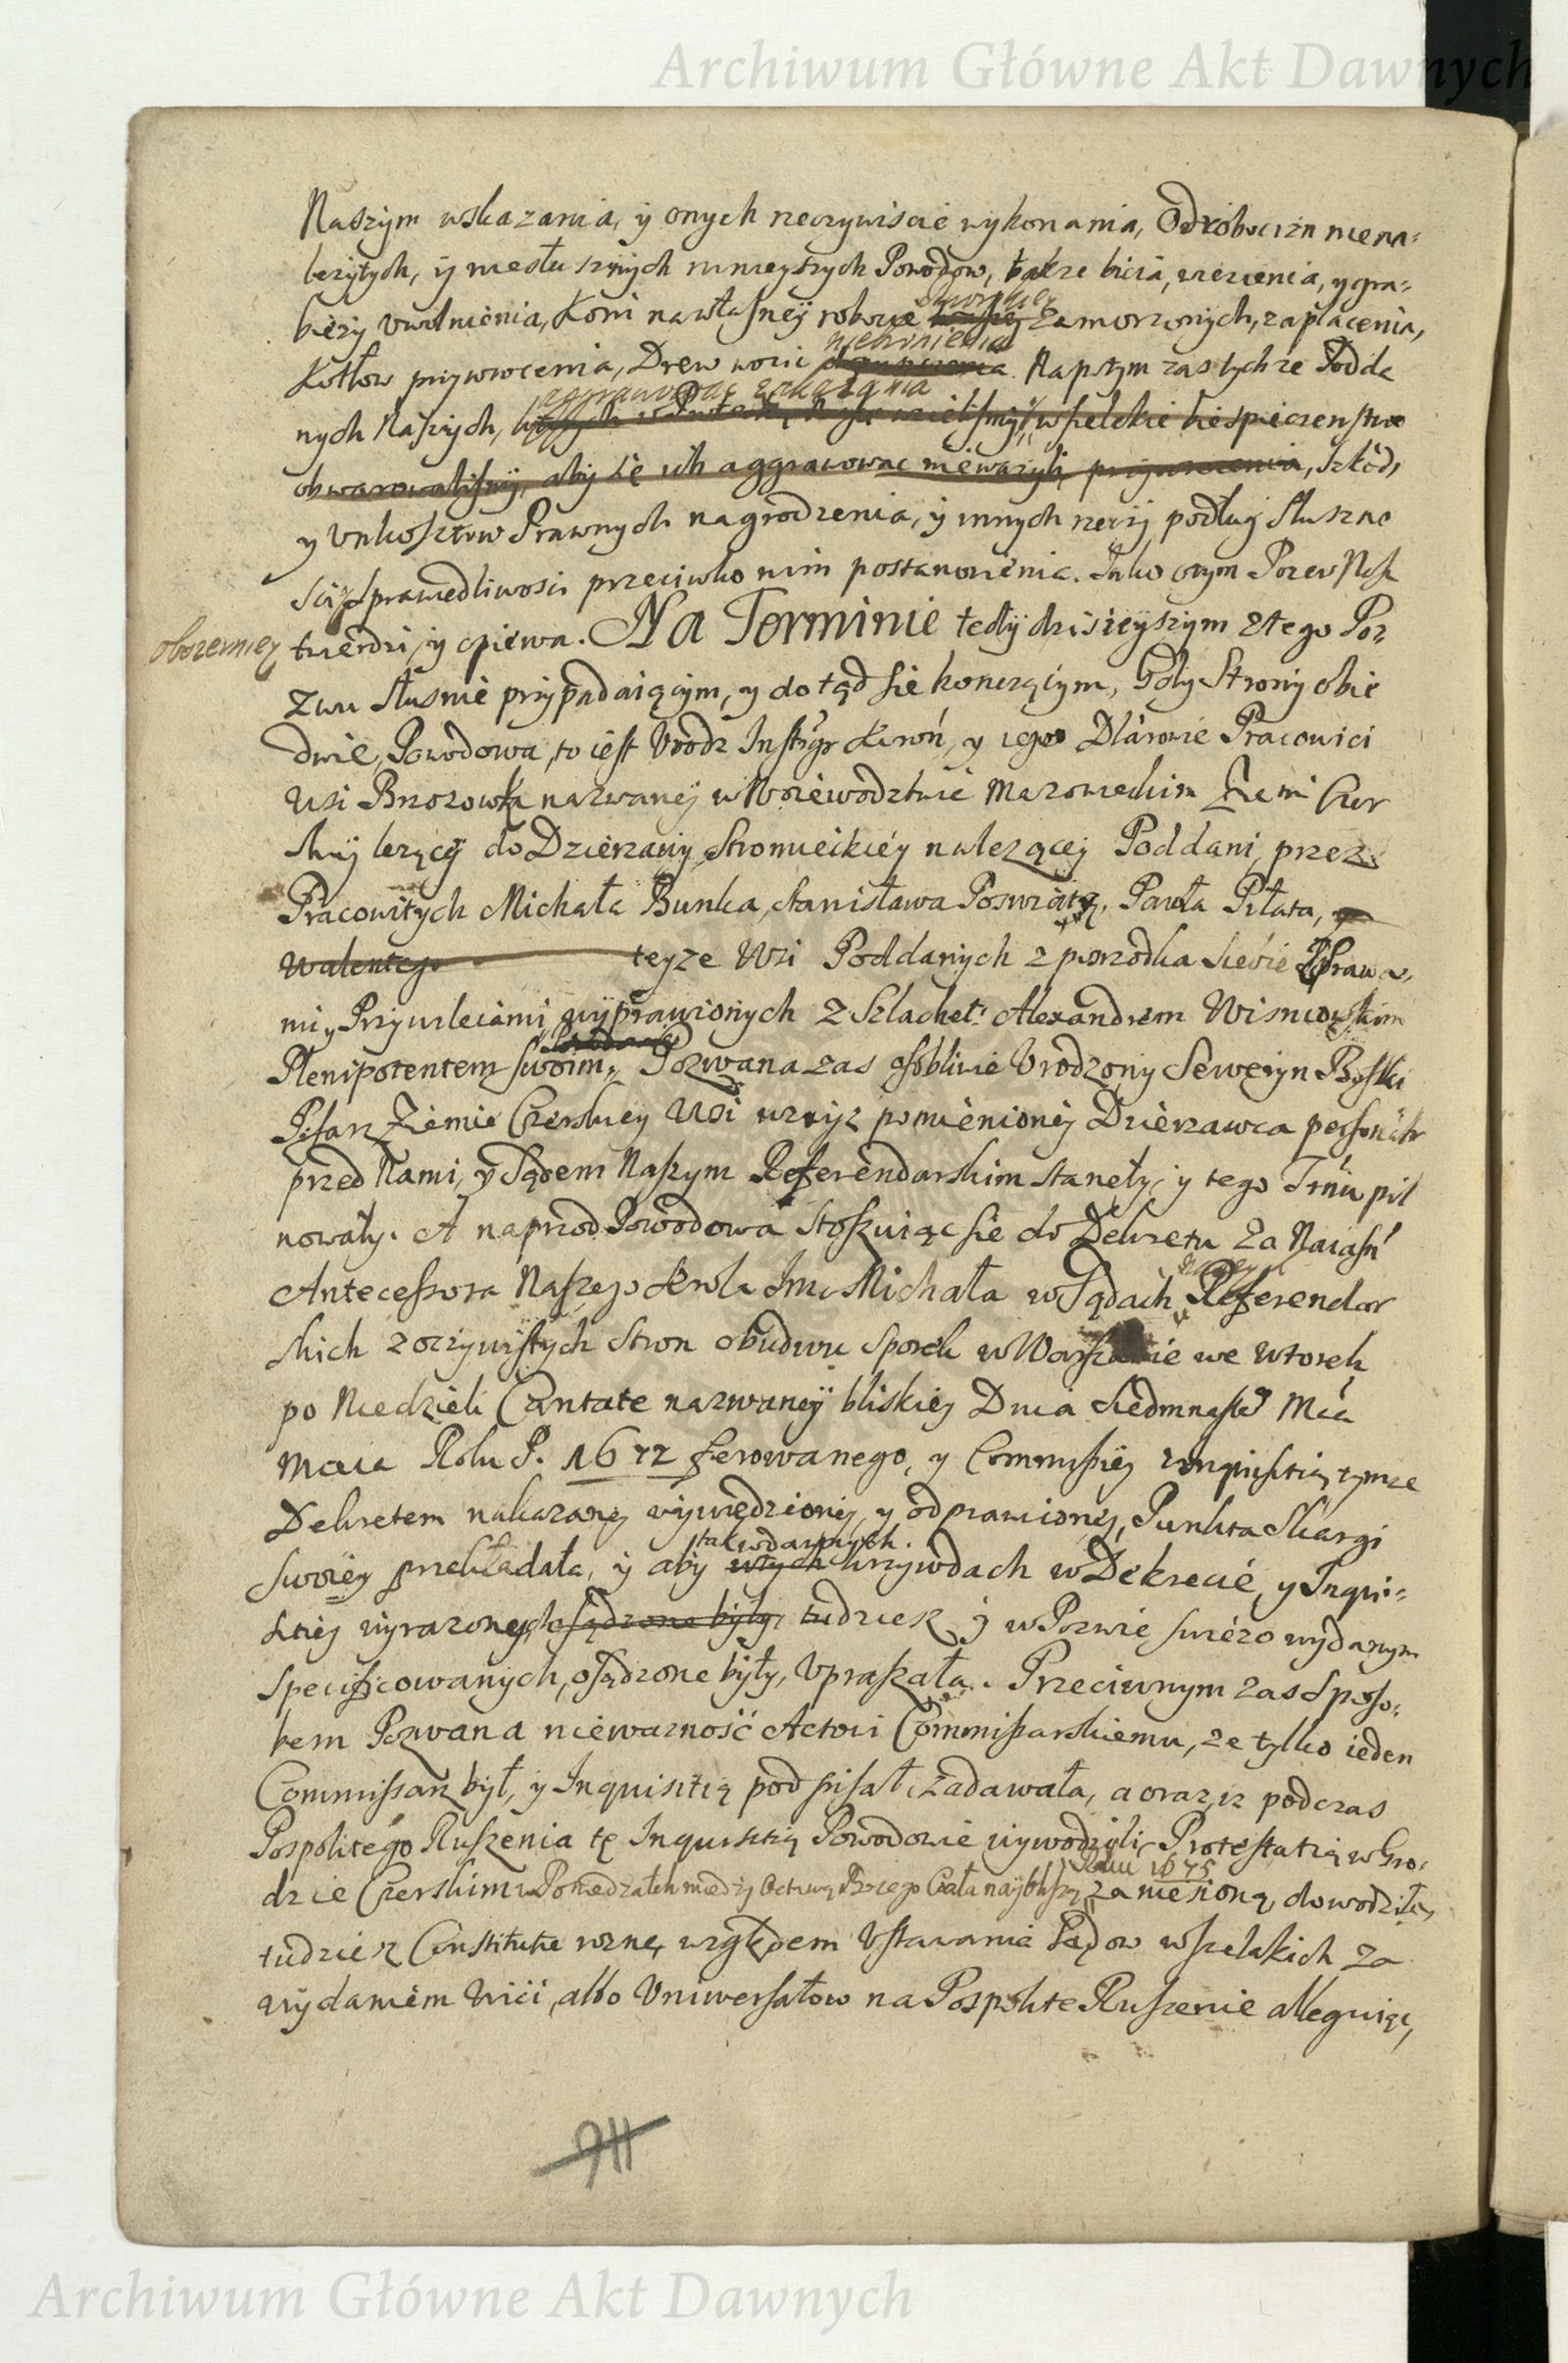 Archiwum Główne Akt Dawnych
Naszym wskazania, y onych rzeczywiscie wykonania, Odrobocizn niena-
lezytych, y niesłusznych ninieyszych Powodow, takze bicia, wiezienia, y gra-
biezy Vwolnienia, Koni na własney robocie dworskiey zamorzonych, zapłacenia,
Kotłow przywrocenia, Drew wozic niebronienia Napstym zas tychze Podda
nych Naszych, aggrawowac zakazania wszelkie bespieczenstwo
obwarowalismy, aby się ich aggrawowac niewazyli przywrocenia, szkod,
y Vnkosztow Prawnych nagrodzenia, y innych rzeczy podług słuszno
sci y sprawedliwosci przeciwko nim postanowienia. Jako o tym Pozew Nasz
obszerniey twierdzi, y opiewa. Na Terminie tedy dzisieyszym z tego Poz
zwu słusnie przypadaiącym, y dotąd się konczącym, Gdy Strony obie
dwie, Powodowa, to iest Vrodz Instygr Koroń, y iego Dlatorowie Pracowici
Wsi Brzozowka nazwaney w Woiewodztwie Mazowieckim Ziemi Czer
skiy lezącey do Dzierzawy Stromieckiey nalezącey Poddani, przez
Pracowitych Michała Bunka, Stanisława Poswiata, Pawła Piłata, y
Walentego teyze Wsi Poddanych z posrzodka siebie z Prawa-
mi, y Przywileiami wyprawionych z Szlachet: Alexandrem Wisniowskim
Plenipotentem swoim, Pozwana zas osobliwie Vrodzony Seweryn Boski
Pisarz Ziemie Czerskiey Wsi wzwyz pomienioney Dzierzawca personalr
przed Nami, y Sądem Naszym Referendarskim stanęły, y tego Trnu pil
nowały. A naprzod Powodowa stosuiąc się do Dekretu za Naiasń
Antecessora Naszego Krola Jmci Michała w Sądach Naszych Referendar
skich z oczywistych stron obudwu sporek w Warszawie we Wtorek
po Niedzieli Cantate nazwaney bliskiey Dnia Siedmnasteo Mca
Maia Roku P. 1672 ferowanego, y Commissiey z Inquisitią tymze
Dekretem nakazaney wywiedzioney, y odprawioney, Punkta Skargi
swoiey przekładała, y aby tak w dawnych krzywdach w Dekrecie, y Inqui-
sitiey wyrazonych sądzone były, tudziesz y w Pozwie swiezo wydanym
specificowanych, osądzone były, Vpraszała. Przeciwnym zas Sposo-
bem Pozwana niewaznosć Actowi Commissarskiemu, ze tylko ieden
Commissarz był, y Inquisitią podpisał, zadawała, a oraz, iz podczas
Pospolitego Ruszenia tę Inquisitią Powodowie wywodzili, Protestatią w Gro-
dzie Czerskim w Poniedzałek między Octawą Bozego Ciała nayblizszy Roku 1675 zaniesioną, dowodziła,
tudziesz Constitutie rozne, względem Vstawania Sądow wszelkich za
wydaniem Wici, albo Vniwersałow na Pospolite Ruszenie alleguiąc,
911
Archiwum Główne Akt Dawnych